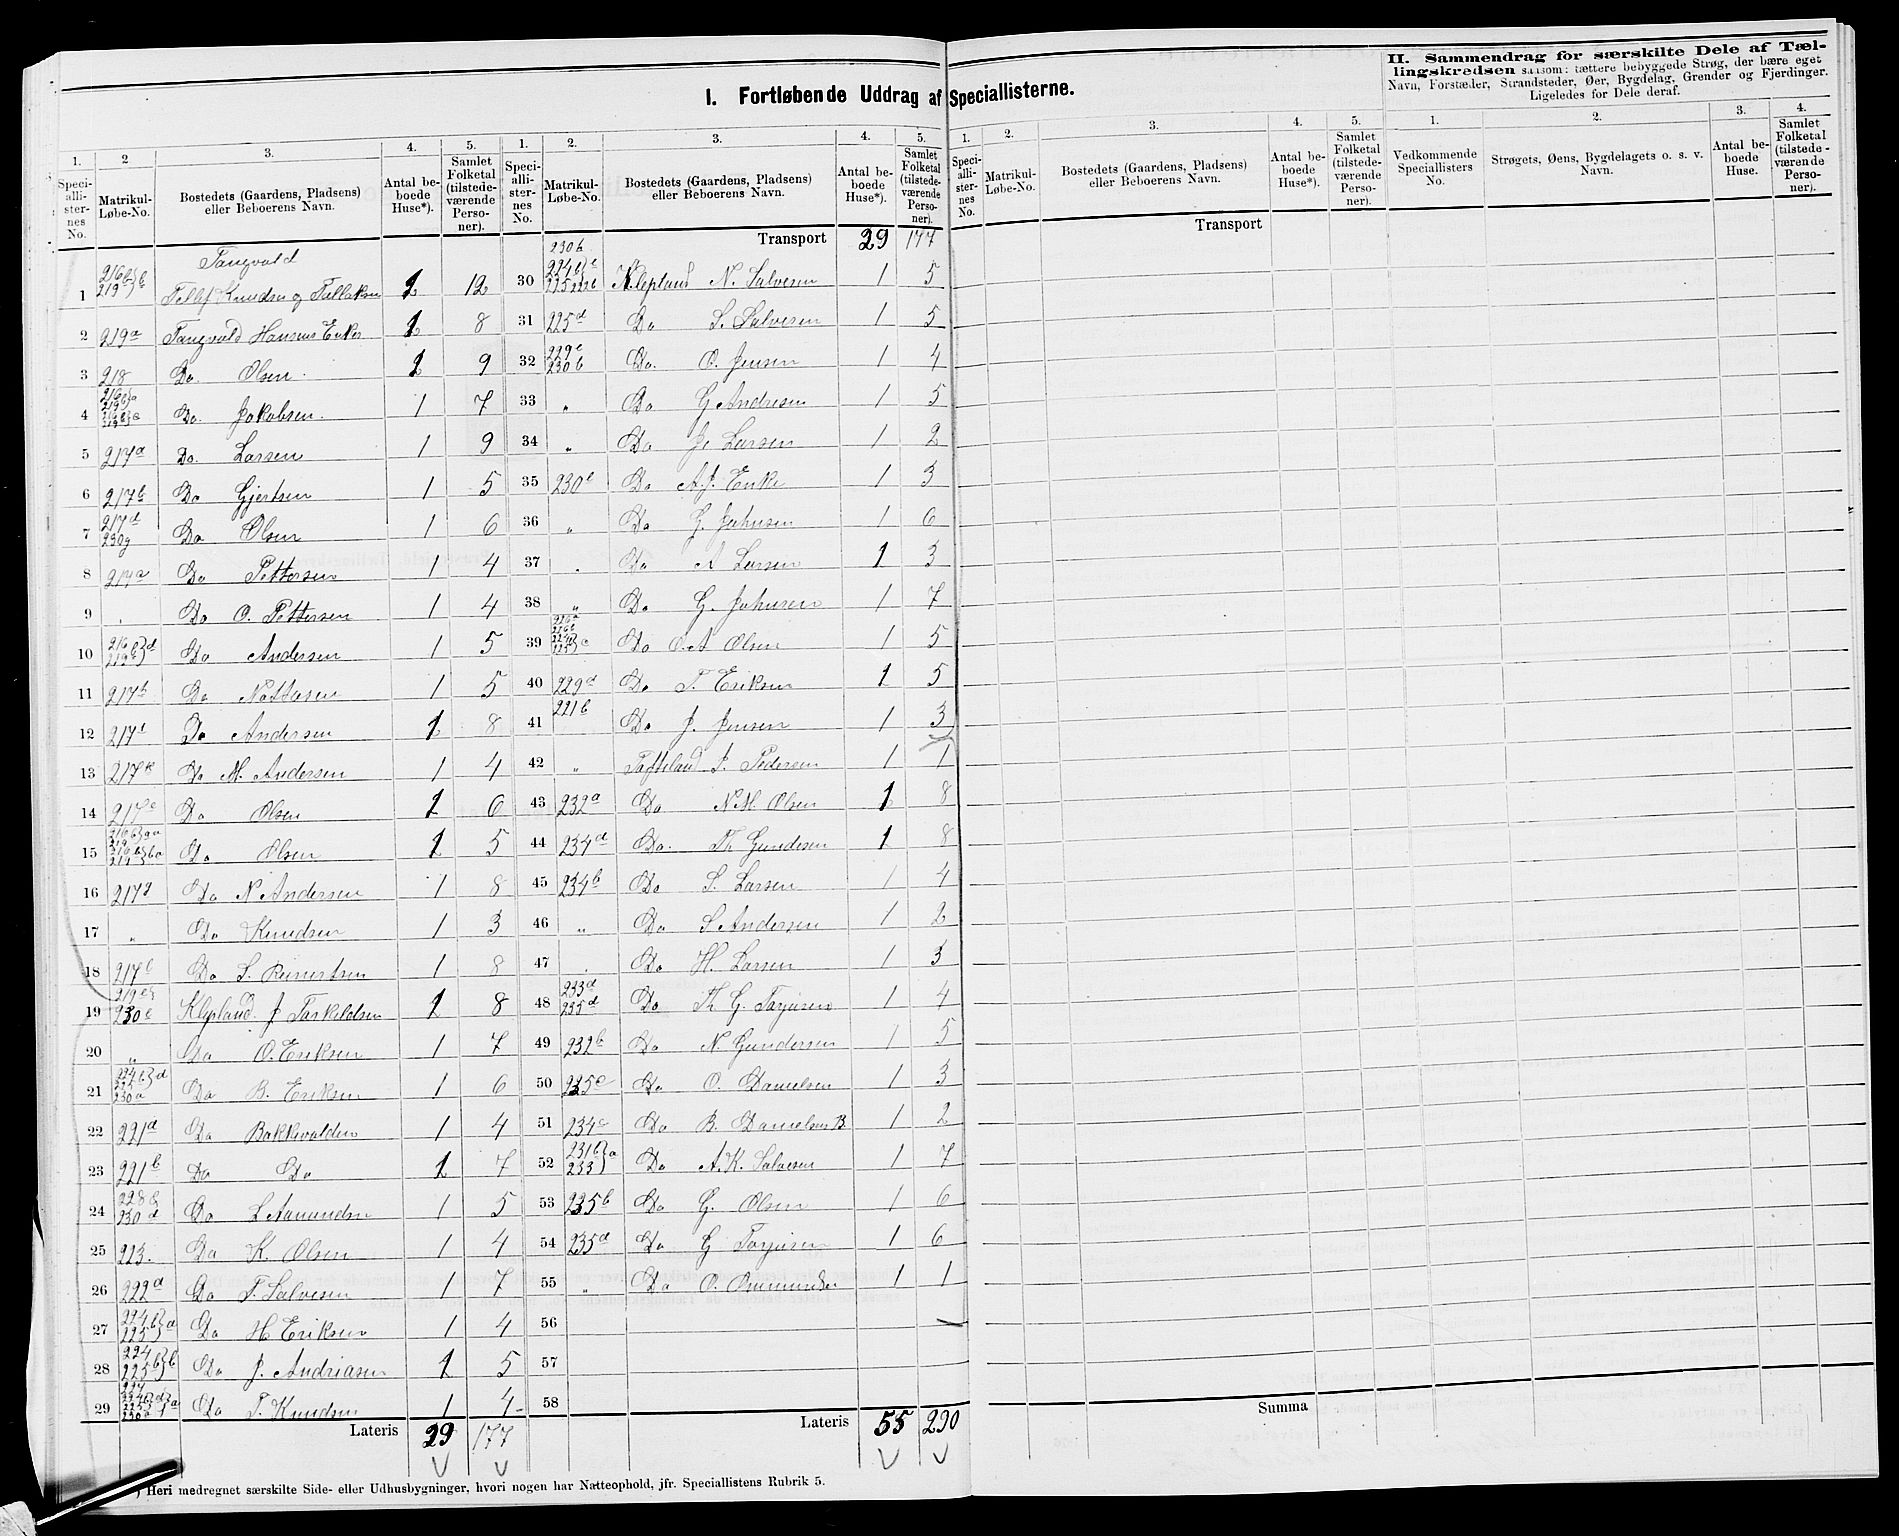 I. Fortløbende Uddrag af Speciallisterne.
II. Sammendrag for særskilte Dele af Tællingskredsen saasom: tættere bebyggede Strøg, der bære eget
Navn, Forstæder, Strandsteder, Øer, Bygdelag, Grender og Fjerdinger.
Ligeledes for Dele deraf.
1. 2 3. 4. 5.
Speciallisternes No. Matrikul-Løbe-No. Bostedets (Gaardens, Pladsens) eller Beboerens Navn. Antal beboede Huse*). Samlet Folketal (tilstedeværende Personer).
Tangvald
1 216b 219 Knudsen og Tellaksen 12
2 219a Tangvald Hansens Enke 8
3 218 Do. Olsen 9
4 Do. Jakobsen 1 7
5 217a Do. Larsen 1 9
6 217b Do Gjertsen 1 5
7 217d 230g Do Olsen 1 6
8 217a Do Pettersen 1 4
9 Do O. Pettersen 1 4
10 216b 219b d Do Andersen 1 5
11 217h Do 1 5
12 217i Do Andersen 1 8
13 217k Do M. Andersen 1 4
14 217c Do Olsen 1 6
15 Do Olsen 1 5
16 217g Do N Andersen 1 8
17 „ Do Knudsen 1 3
18 217l Do S. Reinertsen 1 8
19 230c Klepland J Tarkildsen 1 8
20 „ Do O. Eriksen 1 7
21 230a Do B. Eriksen 1 6
22 221a Do Bakkevolden 1 4
23 221b Do Do 1 7
24 228 230d Do S Aanundsen 1 5
25 223. Do K Olsen 1 4
26 222a Do T. Salvesen 1 7
27 224b 225 a Do H Eriksen 1 4
28 224 225b b Do J. Andreasen 1 5
29 Do T. Knudsen 1 4
Lateris 29 177
1. 2. 3. 4. 5.
Speciallisternes No. Matrikul-Løbe-No. Bostedets (Gaardens, Pladsens) eller Beboerens Navn. Antal beboede Huse*). Samlet Folketal (tilstedeværende Personer).
Transport 29 177
30 230b 224b Klepland N. Salvesen 1 5
31 225d Do S. Salvesen 1 5
32 229c 230b Do. O. Jensen 1 4
33 „ Do G Andresen 1 5
34 „ Do J. Larsen 1 2
35 230e Do A.J. Enke 1 3
36 „ Do G. Johnsen 1 6
37 „ Do A Larsen 1 3
38 „ Do G. Johnsen 1 7
39 Do O.A Olsen 1 5
40 229d Do T. Eriksen 1 5
41 221b Do J. Jensen 1 3
42 „ Tofteland J. Pedersen 1 1
43 232a Do N.M. Olsen 1 8
44 234d Do. Th Gundersen 1 8
45 234b Do S. Larsen 1 4
46 „ Do S Andersen 1 2
47 Do H. Larsen 1 3
48 233d 235d Do Th G. Torjusen 1 4
49 232b Do N. Gundersen 1 5
50 235c Do O. Danielsen 1 3
51 234c Do B. Danielsen B 1 2
52 231b 233 a Do A.K. Salvesen 1 7
53 235b Do G. Olsen 1 6
54 235a Do G Torjusen 1 6
55 „ Do O. Omundsen 1 1
56
57
58
Lateris 55 290
1. 2. 3. 4. 5.
Speciallisternes No. Matrikul-Løbe-No. Bostedets (Gaardens, Pladsens) eller Beboerens Navn. Antal beboede Huse*). Samlet Folketal (tilstedeværende Personer).
Transport
Summa
1. 2. 3. 4.
Vedkommende Speciallisters No. Strøgets, Øens, Bygdelagets o. s. v. Navn. Antal beboede Huse. Samlet Folketal (tilstedeværende Personer).
*) Heri medregnet særskilte Side- eller Udhusbygninger, hvori nogen har Natteophold, jfr. Speciallistens Rubrik 5.